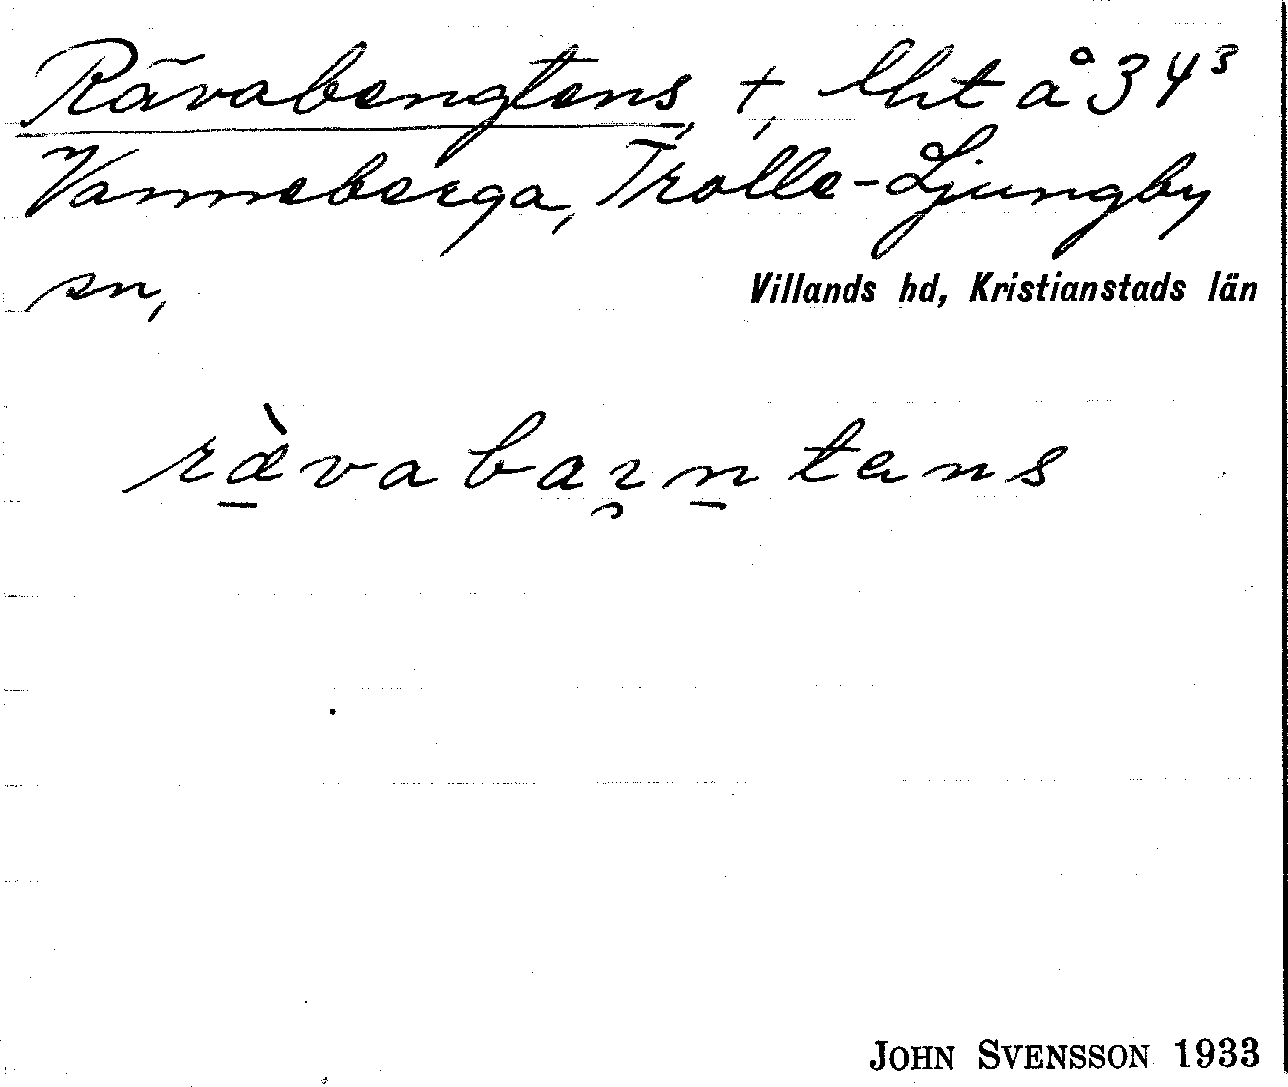 Rävabengtens, †, lht å 34³
Vanneberga, Trolle-Ljungby
sn,
Villands hd, Kristianstads län
rævabaɪntens
JOHN SVENSSON 1933